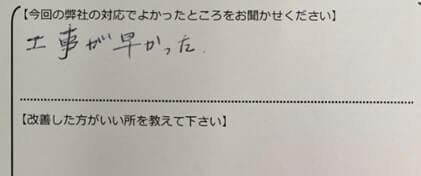 【今回の弊社の対応でよかったところをお聞かせください】
工事が早かった.
【改善した方がいい所を教えて下さい】